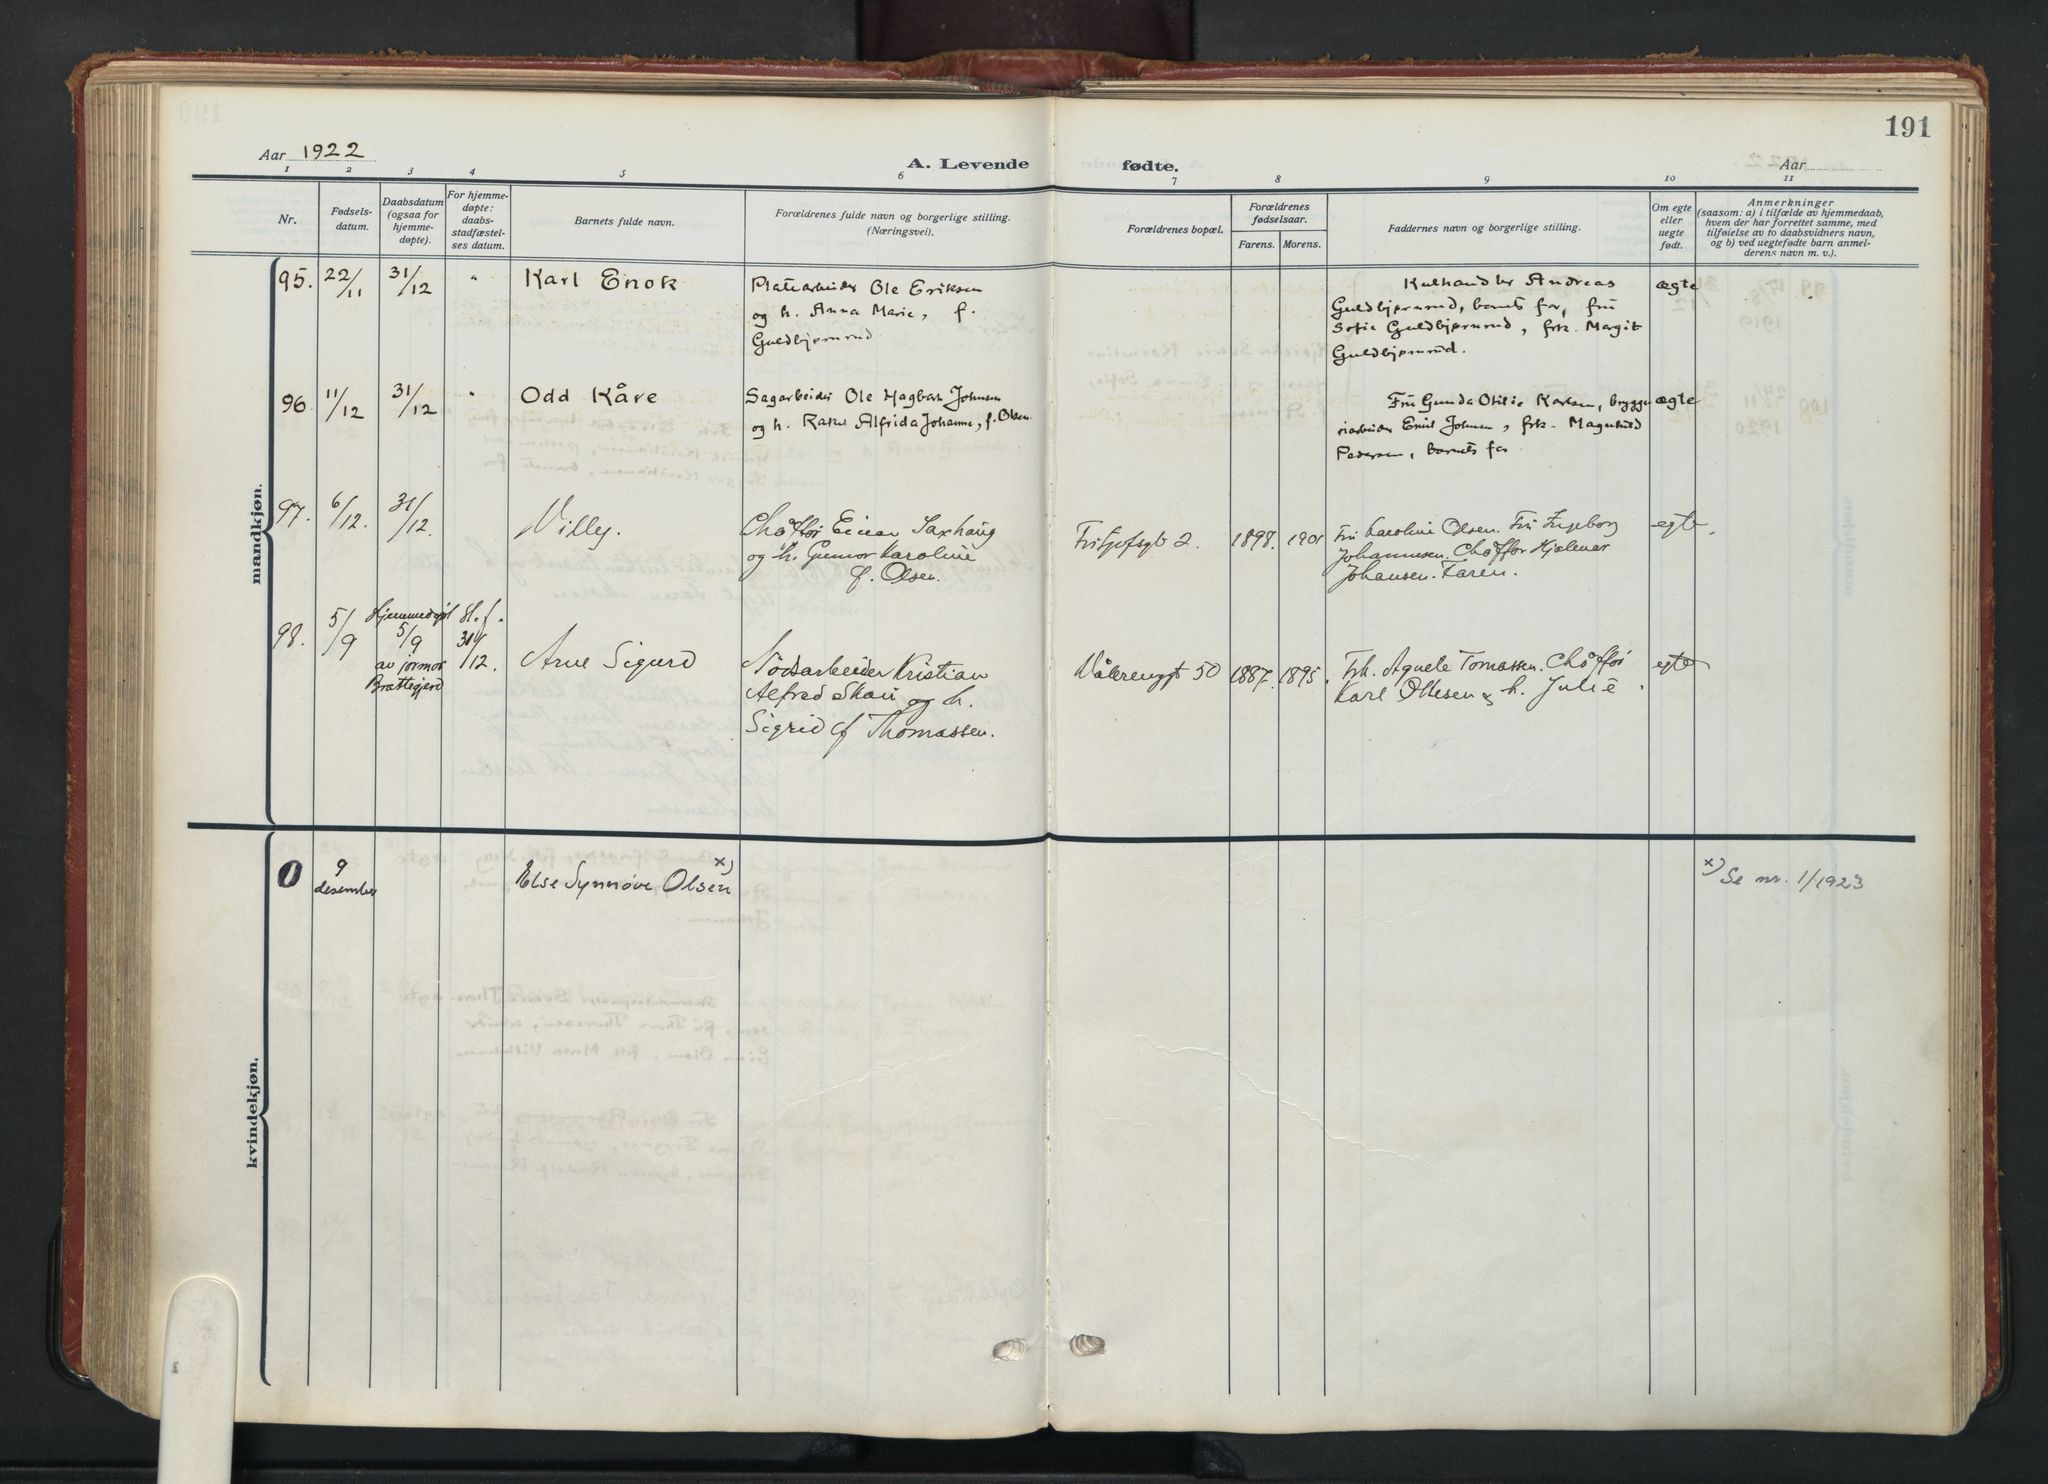 191
Aar 1922
A. Levende fødte.
Aar
1 2 3 4 5 6 7 8 9 10 11
Nr.
Fødsels-
datum.
Daabsdatum
(ogsaa for
hjemme-
døpte).
For hjemme-
døpte:
daabs-
stadfæstel-
ses datum.
Barnets fulde navn.
Forældrenes fulde navn og borgerlige stilling.
(Næringsvei).
Forældrenes bopæl.
Forældrenes
fødselsaar.
Farens. Morens.
Faddernes navn og borgerlige stilling.
Om egte
eller
uegte
født.
Anmerkninger
(saasom: a) i tilfælde av hjemmedaab,
hvem der har forrettet samme, med
tilføielse av to daabsvidners navn,
og b) ved uegtefødte barn anmel-
derens navn m. v.).
mandkjøn.
95. 22/11 31/12 " Karl Enok
Platearbeider Ole Eriksen
og h. Anna Marie, f.
Guldbjørnrud
Kulhandler Andreas
Guldbjørnrud, barnets far, fru
Sofie Guldbjørnrud, frk. Margit
Guldbjørnrud.
ægte
96. 11/12 31/12 " Odd Kåre
Sagarbeider Ole Hagbart Johnsen
og h. Rakel Alfrida Johanne, f. Olsen
Fru Gunda Otilie Karlsen, brygge
riarbeider Emil Johnsen, frk. Magnhild
Pedersen, barnets far
ægte
97. 6/12. 31/12. Willy.
Chåffør Einar Saxhaug
og h. Gunnor Karoline
f. Olsen.
Fritjofsgt 2. 1898. 1901
Fru Karoline Olsen. Fru Ingeborg
Johannesen. Chåffør Hjalmar
Johansen. Faren.
egte.
98. 5/9
Hjemmedøpt
5/9
av jormor
Brattegjerd
St. f.
31/12.
Arne Sigurd
Arbeider Kristian
Alfred Skau og h.
Sigrid f Thomassen.
Vålerenggt 50 1887. 1895.
Frk. Agnete Tomassen. Chåffør
Karl Ottesen & h. Julie.
egte
kvindekjøn.
0 9
desember
Else Synnøve Olsen x)
x) Se nr. 1/1923